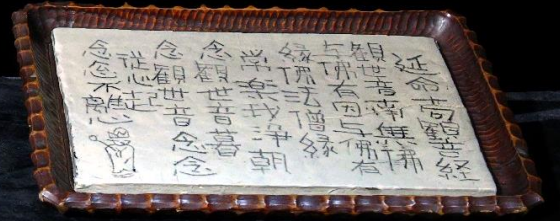 延命十句観音経
観世音南無佛
与佛有因与佛有
縁佛法僧縁
常楽我浄朝
念観世音暮
念観世音念念
従心起
念念不離心